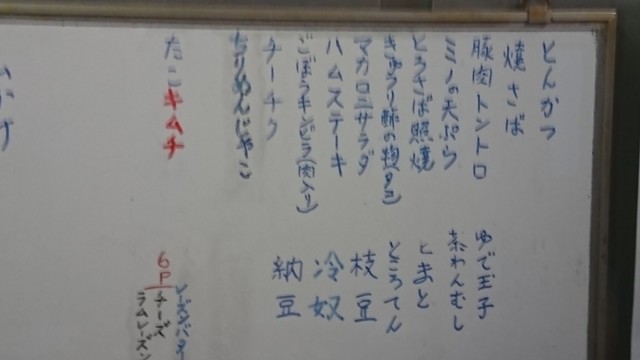 とんかつ
焼さば
豚肉トントロ
ミノの天ぷら
とろさば照焼
きゅうり酢の物(タコ)
マカロニサラダ
ハムステーキ
ごぼうキンピラ(肉入り)
チーチク
ちりめんじゃこ
たこキムチ
ゆで玉子
茶わんむし
とまと
ところてん
枝豆
冷奴
納豆
6P
チーズ